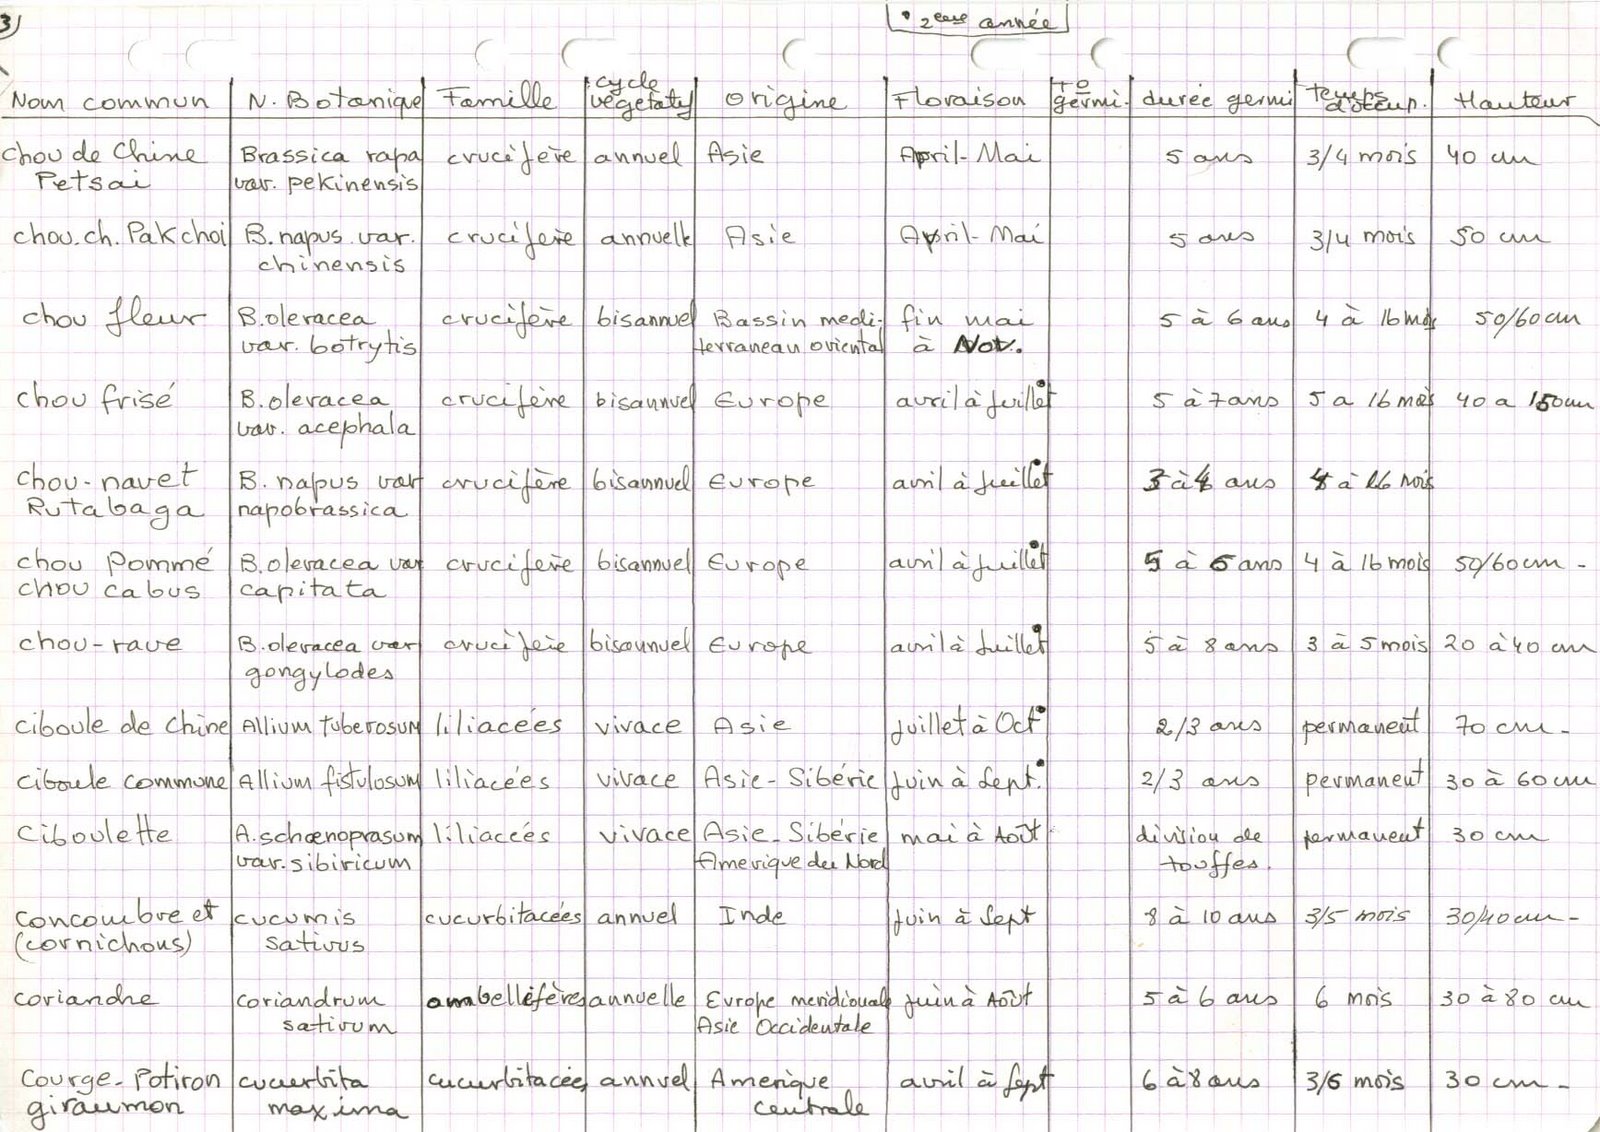 3
• 2eme année
Nom commun N. Botanique Famille cycle végétatif Origine Floraison T° germi. durée germi temps d'occup. Hauteur
chou de Chine Brassica rapa crucifère annuel Asie April-Mai 5 ans 3/4 mois 40 cm
Petsai var. pekinensis
chou. ch. Pakchoi B. napus var. crucifère annuelle Asie April-Mai 5 ans 3/4 mois 50 cm
chinensis
chou fleur B. oleracea crucifère bisannuel Bassin medi- fin mai 5 à 6 ans 4 à 16 mois 50/60 cm
var. botrytis terranean oriental à Nov.
chou frisé B. oleracea crucifère bisannuel Europe avril à juillet 5 à 7 ans 5 a 16 mois 40 a 150 cm
var. acephala
chou-navet B. napus var crucifère bisannuel Europe avril à juillet 3 à 4 ans 4 à 16 mois
Rutabaga napobrassica
chou Pommé B. oleracea var crucifère bisannuel Europe avril à juillet 5 à 6 ans 4 à 16 mois 50/60 cm -
chou cabus capitata
chou-rave B. oleracea var crucifère bisannuel Europe avril à juillet 5 à 8 ans 3 à 5 mois 20 à 40 cm
gongylodes
ciboule de Chine Allium tuberosum liliacées vivace Asie juillet à Oct 2/3 ans permanent 70 cm -
ciboule commune Allium fistulosum liliacées vivace Asie-Sibérie juin à Sept. 2/3 ans permanent 30 à 60 cm
ciboulette A. schœnoprasum liliacées vivace Asie-Sibérie mai à Août division de permanent 30 cm
var. sibiricum Amerique du Nord touffes.
concombre et cucumis cucurbitacées annuel Inde juin à Sept 8 à 10 ans 3/5 mois 30/40 cm -
(cornichons) sativus
coriandre coriandrum ombellifères annuelle Europe meridionale juin à Août 5 à 6 ans 6 mois 30 à 80 cm
sativum Asie Occidentale
courge-Potiron cucurbita cucurbitacées annuel Amerique avril à Sept 6 à 8 ans 3/6 mois 30 cm -
giraumon maxima centrale